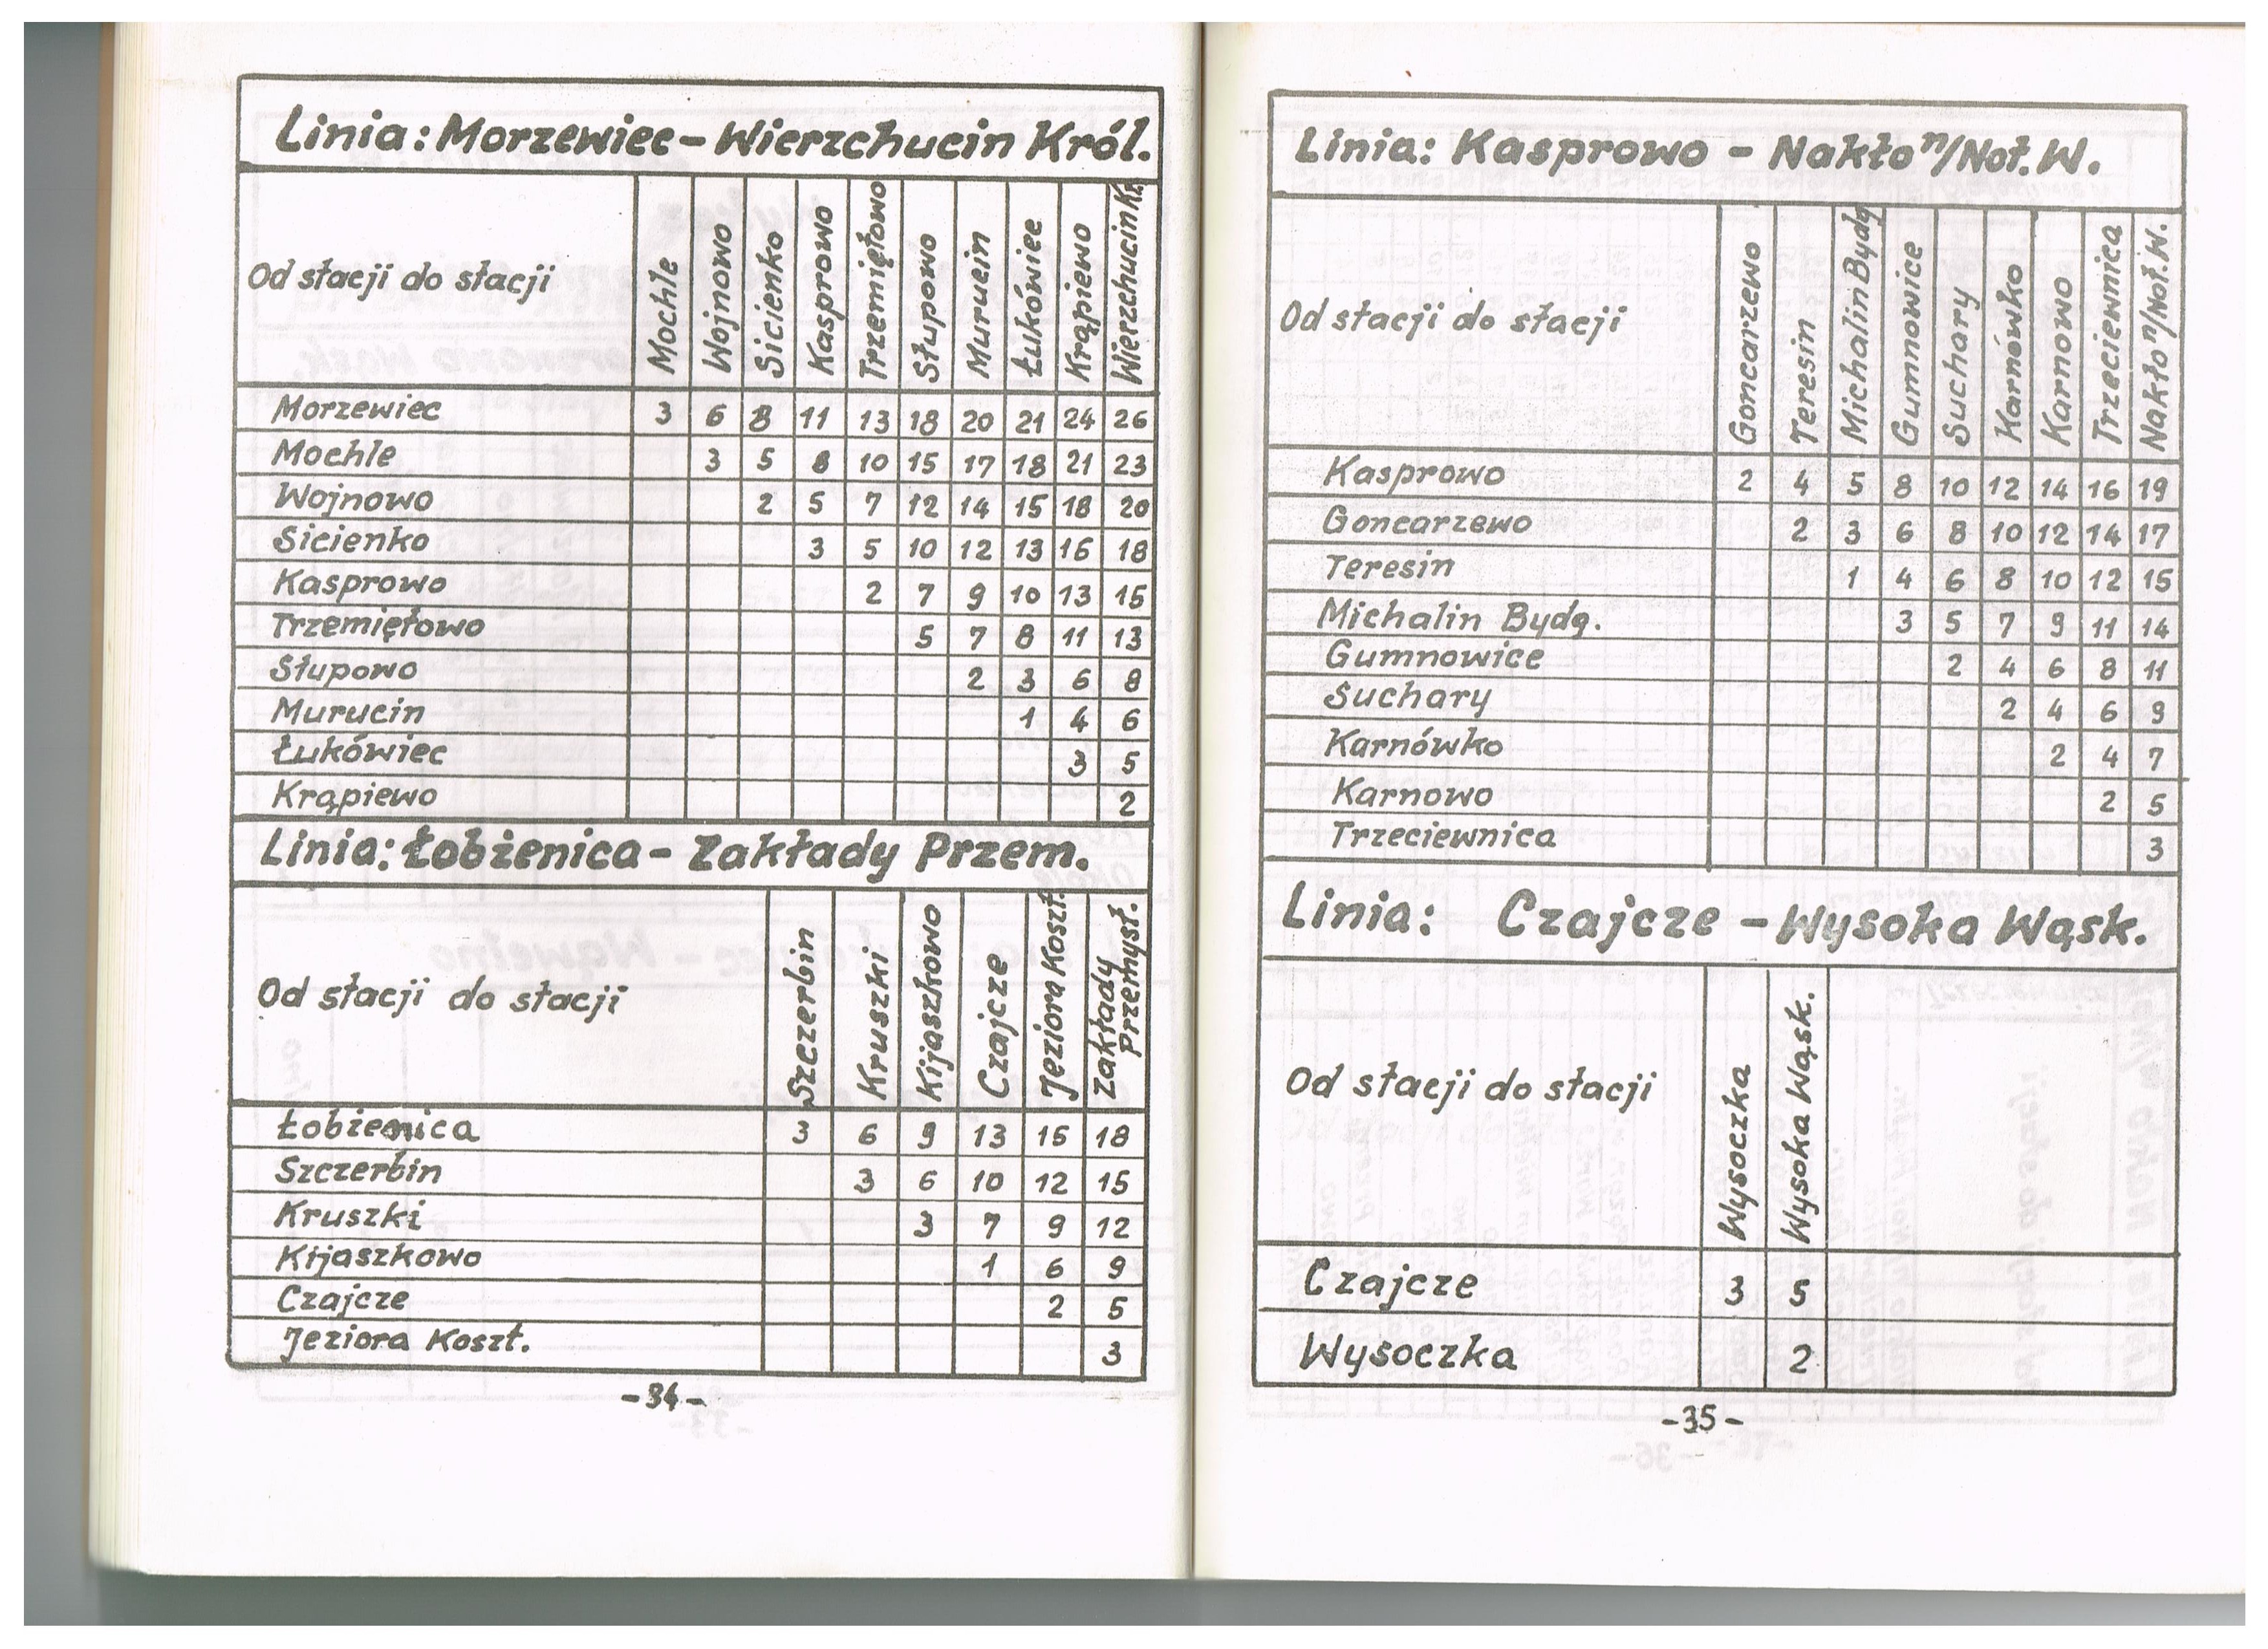 Linia: Morzewiec – Wierzchucin Król.
Od stacji do stacji Mochle Wojnowo Sicienko Kasprowo Trzemiętowo Słupowo Murucin Łukówiec Krąpiewo Wierzchucin Kr.
Morzewiec 3 6 8 11 13 18 20 21 24 26
Mochle 3 5 8 10 15 17 18 21 23
Wojnowo 2 5 7 12 14 15 18 20
Sicienko 3 5 10 12 13 16 18
Kasprowo 2 7 9 10 13 15
Trzemiętowo 5 7 8 11 13
Słupowo 2 3 6 8
Murucin 1 4 6
Łukówiec 3 5
Krąpiewo 2
Linia: Łobżenica – Zakłady Przem.
Od stacji do stacji Szczerbin Kruszki Kijaszkowo Czajcze Jeziora Koszt. Zakłady Przemysł.
Łobżenica 3 6 9 13 15 18
Szczerbin 3 6 10 12 15
Kruszki 3 7 9 12
Kijaszkowo 1 6 9
Czajcze 2 5
Jeziora Koszt. 3
-34-
Linia: Kasprowo – Nakło n/Not. W.
Od stacji do stacji Goncarzewo Teresin Michalin Bydg Gumnowice Suchary Karnówko Karnowo Trzeciewnica Nakło n/Not. W.
Kasprowo 2 4 5 8 10 12 14 16 19
Goncarzewo 2 3 6 8 10 12 14 17
Teresin 1 4 6 8 10 12 15
Michalin Bydg. 3 5 7 9 11 14
Gumnowice 2 4 6 8 11
Suchary 2 4 6 9
Karnówko 2 4 7
Karnowo 2 5
Trzeciewnica 3
Linia: Czajcze – Wysoka Wąsk.
Od stacji do stacji Wysoczka Wysoka Wąsk.
Czajcze 3 5
Wysoczka 2
-35-